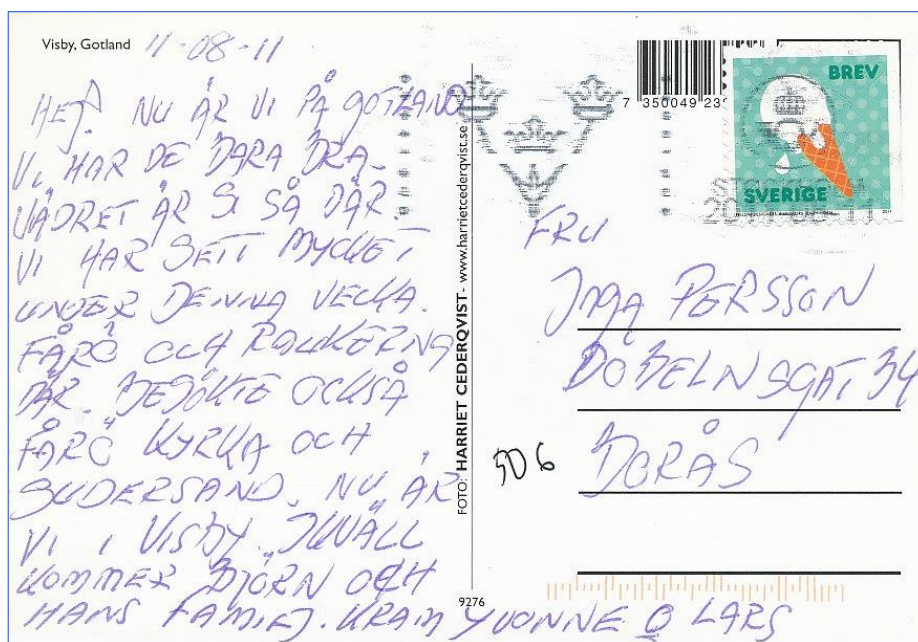 Visby, Gotland
11-08-11
HEJ. NU ÄR VI PÅ GOTLAND
VI HAR DE BARA BRA.
VÄDRET ÄR SI SÅ DÄR.
VI HAR SETT MYCKET
UNDER DENNA VECKA.
FÅRÖ OCH RAUKERNA
DÄR. BESÖKTE OCKSÅ
FÅRÖ KYRKA OCH
SUDERSAND. NU ÄR
VI I VISBY. IKVÄLL
KOMMER BJÖRN OCH
HANS FAMILJ. KRAM YVONNE O LARS
FOTO: HARRIET CEDERQVIST - www.harrietcederqvist.se
9276
7 350049 23
BREV
SVERIGE
FRU
Inga PERSSON
DÖBELNSGAT 34
BORÅS
506